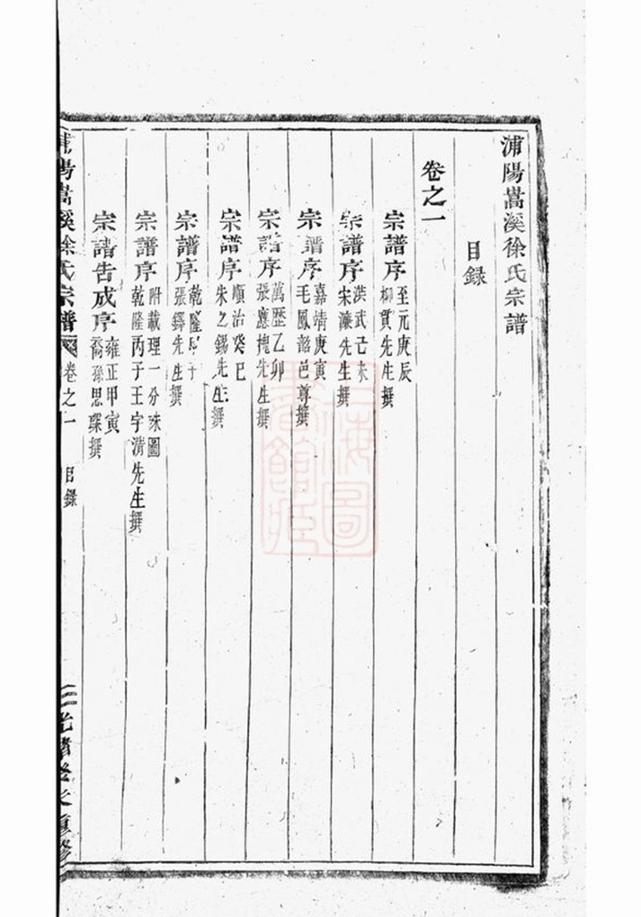 浦陽嵩溪徐氏宗譜
目錄
卷之一
宗譜序 至元庚辰
柳貫先生撰
宗譜序 洪武己未
宋濂先生撰
宗譜序 嘉靖庚寅
毛鳳韶邑尊撰
宗譜序 萬歷乙卯
張應槐先生撰
宗譜序 順治癸巳
朱之錫先生撰
宗譜序 乾隆子
張鐸先生撰
宗譜序 附載理一分殊圖
乾隆丙子王宇清先生撰
宗譜告成序 雍正甲寅
裔孫思撰
浦陽嵩溪徐氏宗譜 卷之一 目錄 光緒重修
上海圖書館藏